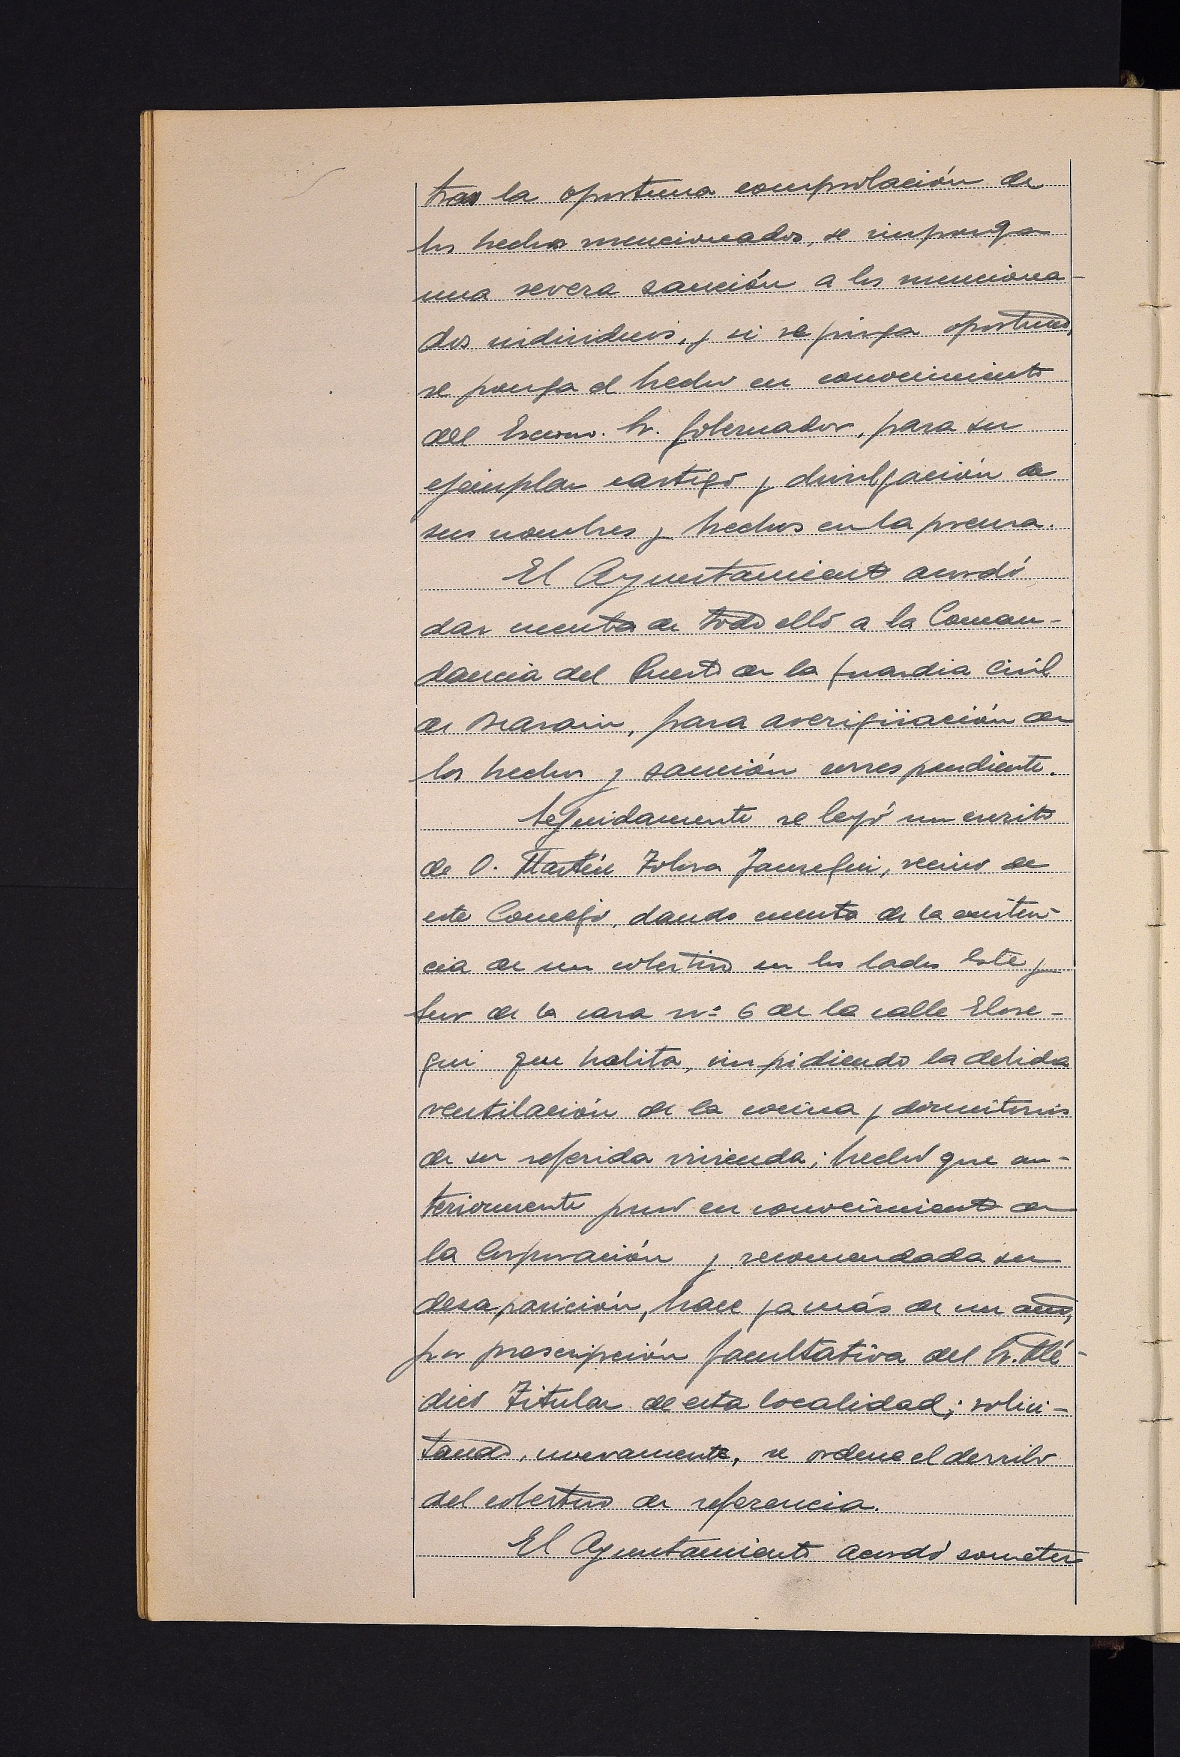 tras la oportuna comprobación de
los hechos mencionados, se imponga
una severa sanción a los menciona-
dos individuos, y si se juzga oportuno,
se ponga el hecho en conocimiento
del Excmo. Sr. Gobernador, para su
ejemplar castigo y divulgación de
sus nombres y hechos en la prensa.
El Ayuntamiento acordó
dar cuenta de todo ello a la Coman-
dancia del Puesto de la Guardia Civil
de Beasain, para averigüación de
los hechos y sanción correspondiente.
Seguidamente se leyó un escrito
de D. Martín Tolosa Jauregui, vecino de
este Concejo, dando cuenta de la existen-
cia de un cobertizo en los lados Este y
Sur de la casa nº 6 de la calle Elose-
gui que habita, impidiendo la debida
ventilación de la cocina y dormitorios
de su referida vivienda; hecho que an-
teriormente puso en conocimiento de
la Corporación y recomendada su
desaparición, hace ya más de un año,
por prescripción facultativa del Sr. Mé-
dico Titular de esta localidad; solici-
tando, nuevamente, se ordene el derribo
del cobertizo de referencia.
El Ayuntamiento acordó someter